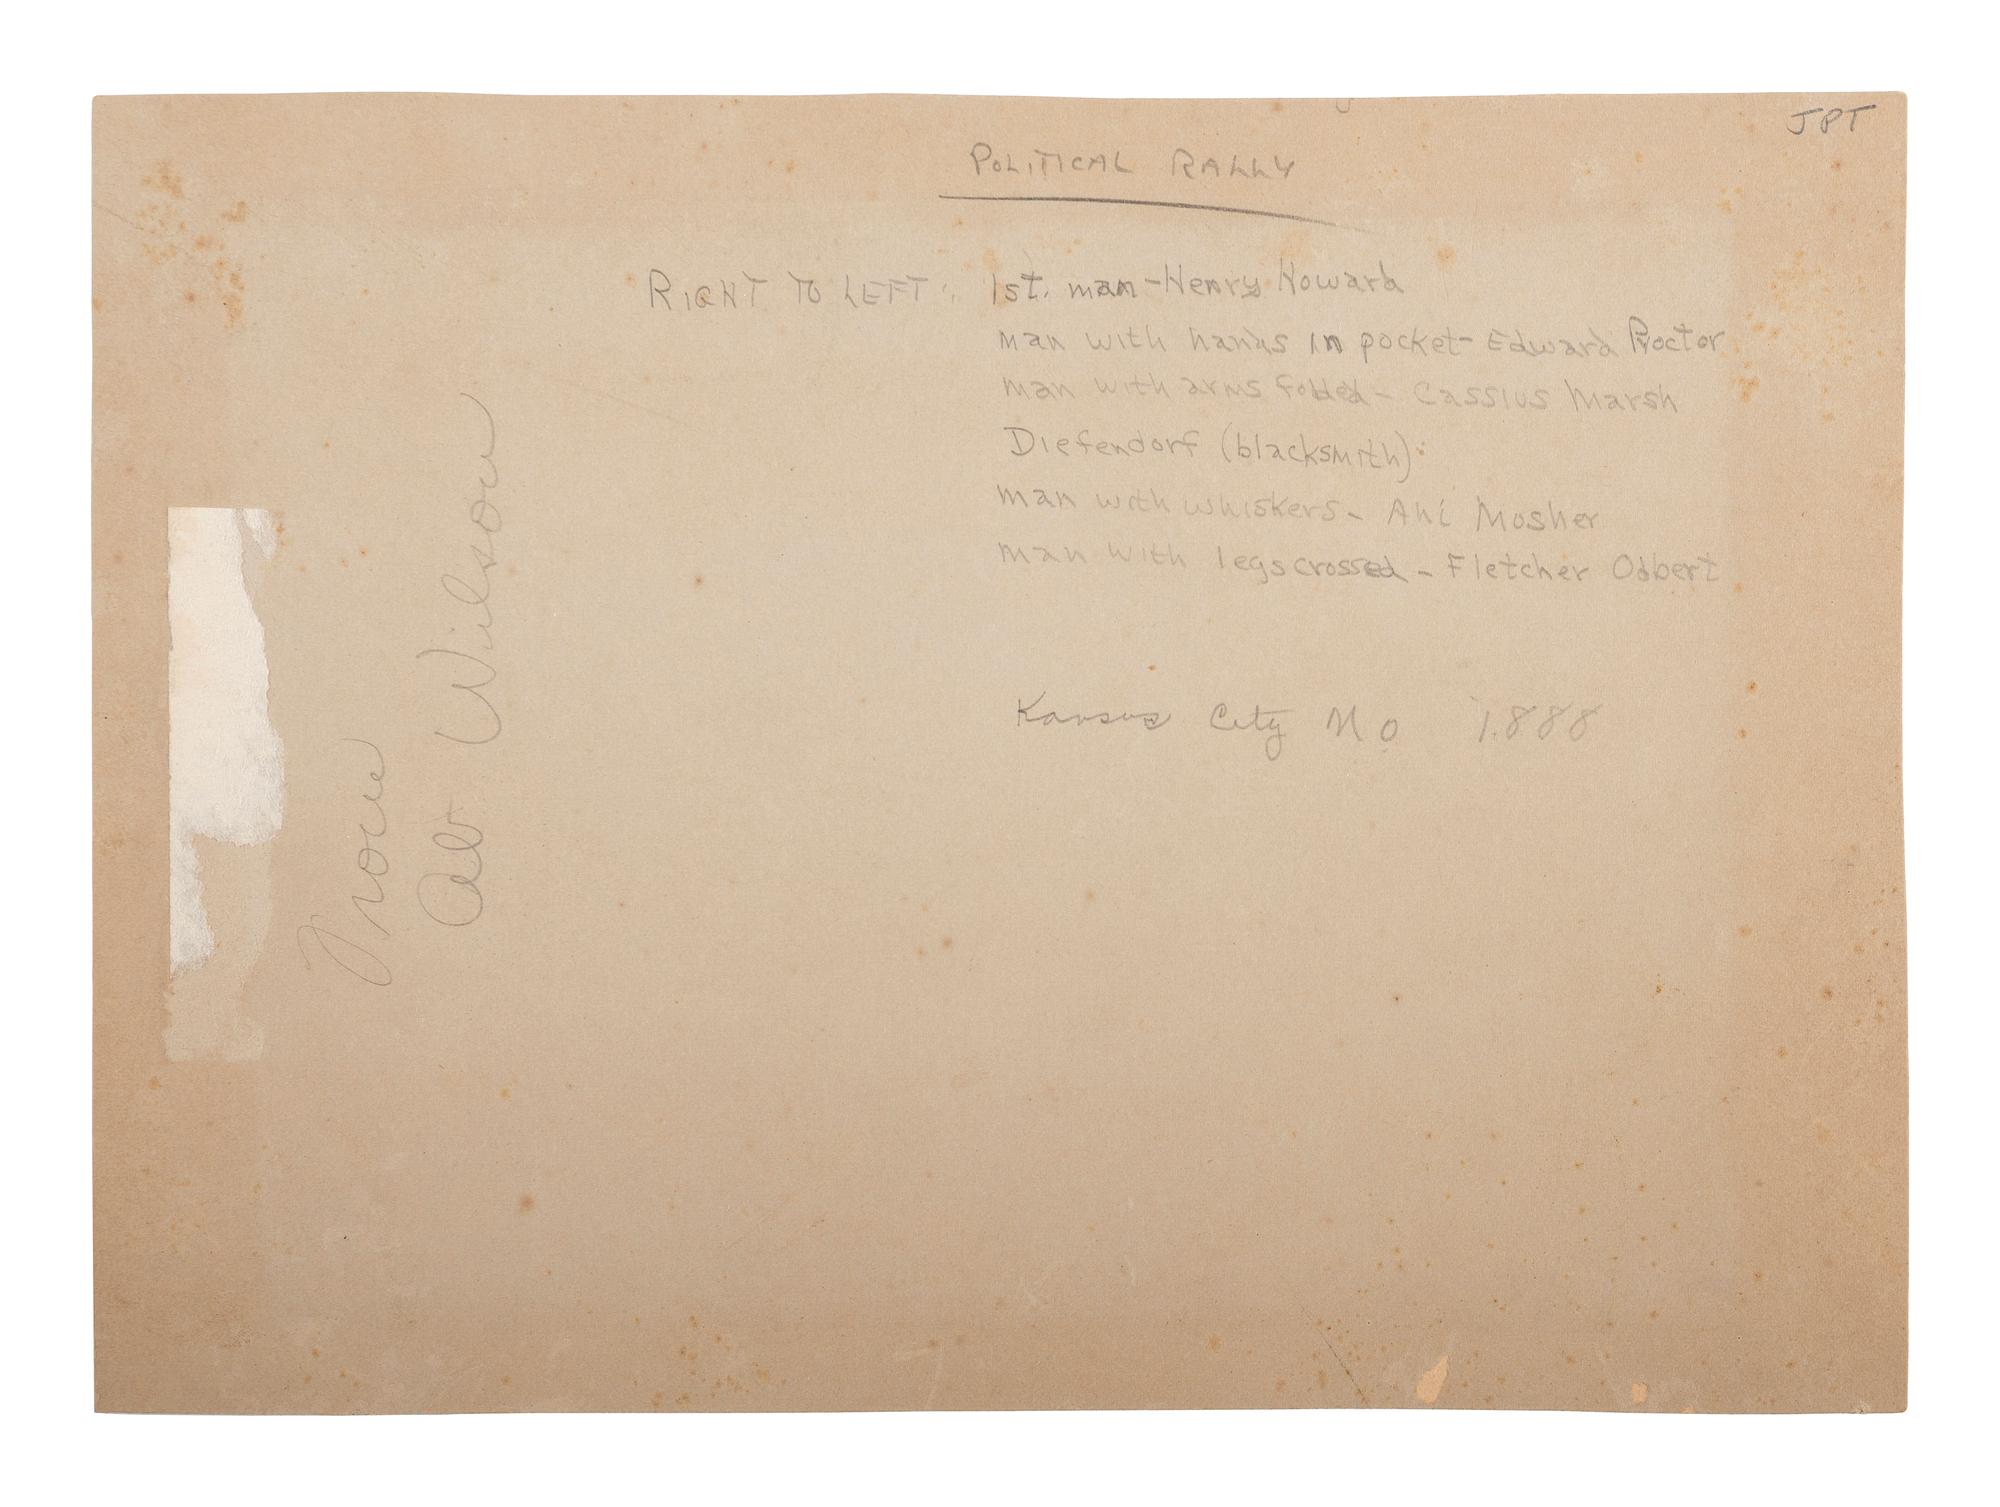 JPT
POLITICAL RALLY
RIGHT TO LEFT: 1st. man - Henry Howard
man with hands in pocket - Edward Proctor
man with arms folded - Cassius Marsh
Diefendorf (blacksmith)
man with whiskers - Ani Mosher
man with legs crossed - Fletcher Odbert
Kansas City Mo 1888
Ab Wilson